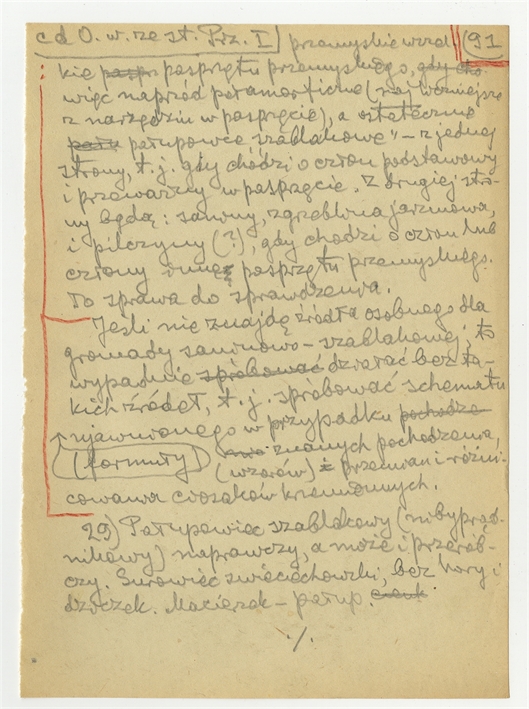 c d O. w. ze st. Prz. I przemyskie wzad 91
kie pasprzętu przemyskiego, gdy cho
więc naprzód petamorficne (
z narzędziu w pasprzęcie), a ostateczno
patupowce szablakowe" – z jednej
strony, t. j. gdy chodzi o człon podstawowy
i przeważny w pasprzęcie. Z drugiej stro-
ny będą: saniny, zgrzeblina jarzmowa,
i pilczyny (?), gdy chodzi o człon lub
człony inne pasprzętu przemyskiego.
To sprawa do sprawdzenia.
Jeśli nie znajdę źródła osobnego dla
gromady saninowo-szablakowej, to
wypadnie spróbować działać bez ta-
kich źródeł, t. j. spróbować schematu
ujawnionego w przypadku pochodze
(formuły) znanych pochodzenia,
(wzorów) i przemian i różni-
cowania ciosaków krzemiennych.
29) Patupowiec szablakowy (nibyprąd-
nikowy) naprawczy, a może i przerób-
czy. Surowiec świeciechowski, bez kory i
dzioczek. Macierzak – patup.
./.